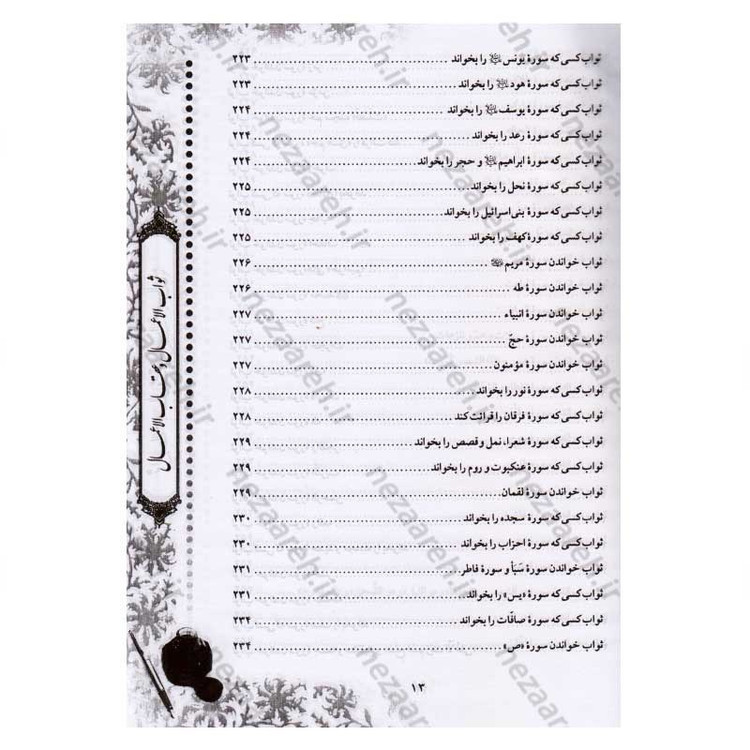 ثواب کسی که سورۀ یونس ﷺ را بخواند ........ ۲۲۳
ثواب کسی که سورۀ هود ﷺ را بخواند ........ ۲۲۳
ثواب کسی که سورۀ یوسف ﷺ را بخواند ........ ۲۲۴
ثواب کسی که سورۀ رعد را بخواند ........ ۲۲۴
ثواب کسی که سورۀ ابراهیم ﷺ و حجر را بخواند ........ ۲۲۴
ثواب کسی که سورۀ نحل را بخواند ........ ۲۲۵
ثواب کسی که سورۀ بنی‌اسرائیل را بخواند ........ ۲۲۵
ثواب کسی که سورۀ کهف را بخواند ........ ۲۲۵
ثواب خواندن سورۀ مریم ﷺ ........ ۲۲۶
ثواب خواندن سورۀ طه ........ ۲۲۶
ثواب خواندن سورۀ انبیاء ........ ۲۲۷
ثواب خواندن سورۀ حجّ ........ ۲۲۷
ثواب خواندن سورۀ مؤمنون ........ ۲۲۷
ثواب کسی که سورۀ نور را بخواند ........ ۲۲۸
ثواب کسی که سورۀ فرقان را قرائت کند ........ ۲۲۸
ثواب کسی که سورۀ شعرا، نمل و قصص را بخواند ........ ۲۲۹
ثواب کسی که سورۀ عنکبوت و روم را بخواند ........ ۲۲۹
ثواب خواندن سورۀ لقمان ........ ۲۲۹
ثواب کسی که سورۀ سجده را بخواند ........ ۲۳۰
ثواب کسی که سورۀ احزاب را بخواند ........ ۲۳۰
ثواب خواندن سورۀ سَبَأ و سورۀ فاطر ........ ۲۳۱
ثواب کسی که سورۀ «یس» را بخواند ........ ۲۳۱
ثواب کسی که سورۀ صافّات را بخواند ........ ۲۳۴
ثواب خواندن سورۀ «ص» ........ ۲۳۴
۱۳
ثواب الاعمال و عقاب الاعمال
nezaareh.ir